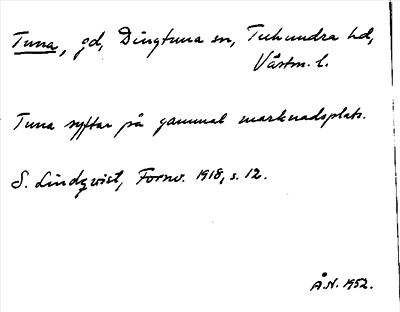 Tuna, gd, Dingtuna sn, Tuhundra hd,
Västm. l.
Tuna syftar på gammal marknadsplats.
S. Lindqvist, Fornv. 1918, s. 12.
Å.N. 1952.